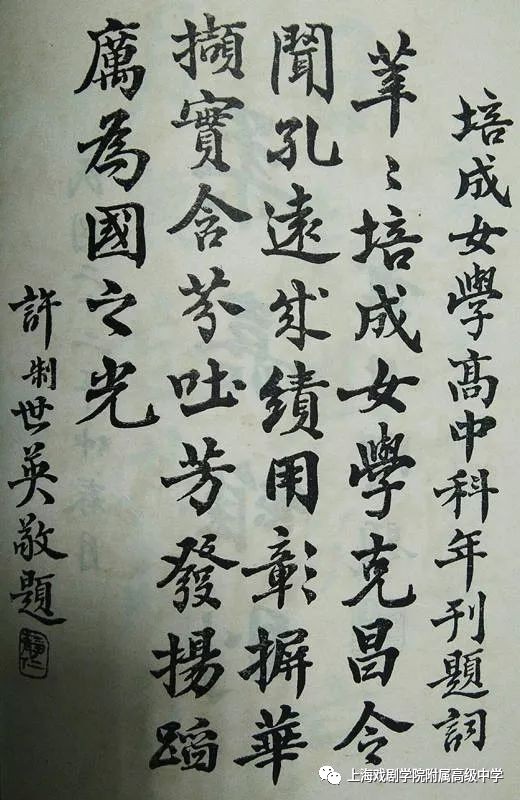 培成女學高中科年刊題詞
莘〻培成女學克昌令
聞孔遠成績用彰摒華
擷實含芬吐芳發揚蹈
厲為國之光
許制世英敬題
靜仁
上海戏剧学院附属高级中学